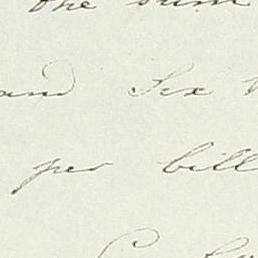 the sum
and Six
per bill